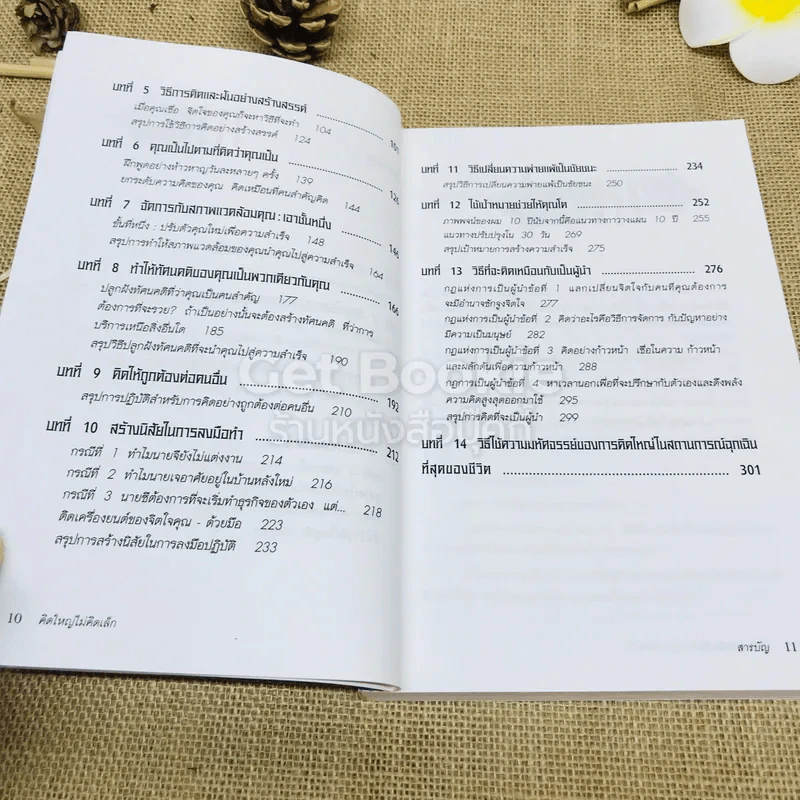 บทที่ 5 วิธีการคิดและฝันอย่างสร้างสรรค์ 101
เมื่อคุณเชื่อ จิตใจของคุณก็จะหาวิธีที่จะทำ 104
สรุปการใช้วิธีการคิดอย่างสร้างสรรค์ 124
บทที่ 6 คุณเป็นไปตามที่คิดว่าคุณเป็น 126
ฝึกพูดอย่างห้าวหาญวันละหลายๆ ครั้ง 139
ยกระดับความคิดของคุณ คิดเหมือนที่คนสำคัญคิด 144
บทที่ 7 จัดการกับสภาพแวดล้อมคุณ : เอาชั้นหนึ่ง 146
ขั้นที่หนึ่ง : ปรับตัวคุณใหม่เพื่อความสำเร็จ 148
สรุปการทำให้สภาพแวดล้อมของคุณนำคุณไปสู่ความสำเร็จ 164
บทที่ 8 ทำให้ทัศนคติของคุณเป็นพวกเดียวกับคุณ 166
ปลูกฝังทัศนคติที่ว่าคุณเป็นคนสำคัญ 177
ต้องการที่จะรวย? ถ้าเป็นอย่างนั้นจะต้องสร้างทัศนคติ ที่ว่าการ
บริการเหนือสิ่งอื่นใด 185
สรุปวิธีปลูกฝังทัศนคติที่จะนำคุณไปสู่ความสำเร็จ 190
บทที่ 9 คิดให้ถูกต้องต่อคนอื่น 192
สรุปการปฏิบัติสำหรับการคิดอย่างถูกต้องต่อคนอื่น 210
บทที่ 10 สร้างนิสัยในการลงมือทำ 212
กรณีที่ 1 ทำไมนายจียังไม่แต่งงาน 214
กรณีที่ 2 ทำไมนายเจอาศัยอยู่ในบ้านหลังใหม่ 216
กรณีที่ 3 นายซีต้องการที่จะเริ่มทำธุรกิจของตัวเอง แต่... 218
ติดเครื่องยนต์ของจิตใจคุณ - ด้วยมือ 223
สรุปการสร้างนิสัยในการลงมือปฏิบัติ 233
10 คิดใหญ่ไม่คิดเล็ก
บทที่ 11 วิธีเปลี่ยนความพ่ายแพ้เป็นชัยชนะ 234
สรุปวิธีการเปลี่ยนความพ่ายแพ้เป็นชัยชนะ 250
บทที่ 12 ใช้เป้าหมายช่วยให้คุณโต 252
ภาพพจน์ของผม 10 ปีนับจากนี้คือแนวทางการวางแผน 10 ปี 255
แนวทางปรับปรุงใน 30 วัน 269
สรุปเป้าหมายการสร้างความสำเร็จ 275
บทที่ 13 วิธีที่จะคิดเหมือนกับเป็นผู้นำ 276
กฎแห่งการเป็นผู้นำข้อที่ 1 แลกเปลี่ยนจิตใจกับคนที่คุณต้องการ
จะมีอำนาจชักจูงจิตใจ 277
กฎแห่งการเป็นผู้นำข้อที่ 2 คิดว่าอะไรคือวิธีการจัดการ กับปัญหาอย่าง
มีความเป็นมนุษย์ 282
กฎแห่งการเป็นผู้นำข้อที่ 3 คิดอย่างก้าวหน้า เชื่อในความ ก้าวหน้า
และผลักดันเพื่อความก้าวหน้า 288
กฎการเป็นผู้นำข้อที่ 4 หาเวลานอกเพื่อที่จะปรึกษากับตัวเองและดึงพลัง
ความคิดสูงสุดออกมาใช้ 295
สรุปคิดที่จะเป็นผู้นำ 299
บทที่ 14 วิธีใช้ความมหัศจรรย์ของการคิดใหญ่ในสถานการณ์ฉุกเฉิน
ที่สุดของชีวิต 301
สารบัญ 11
Get Bookie
ร้านหนังสือบุ๊คกี้